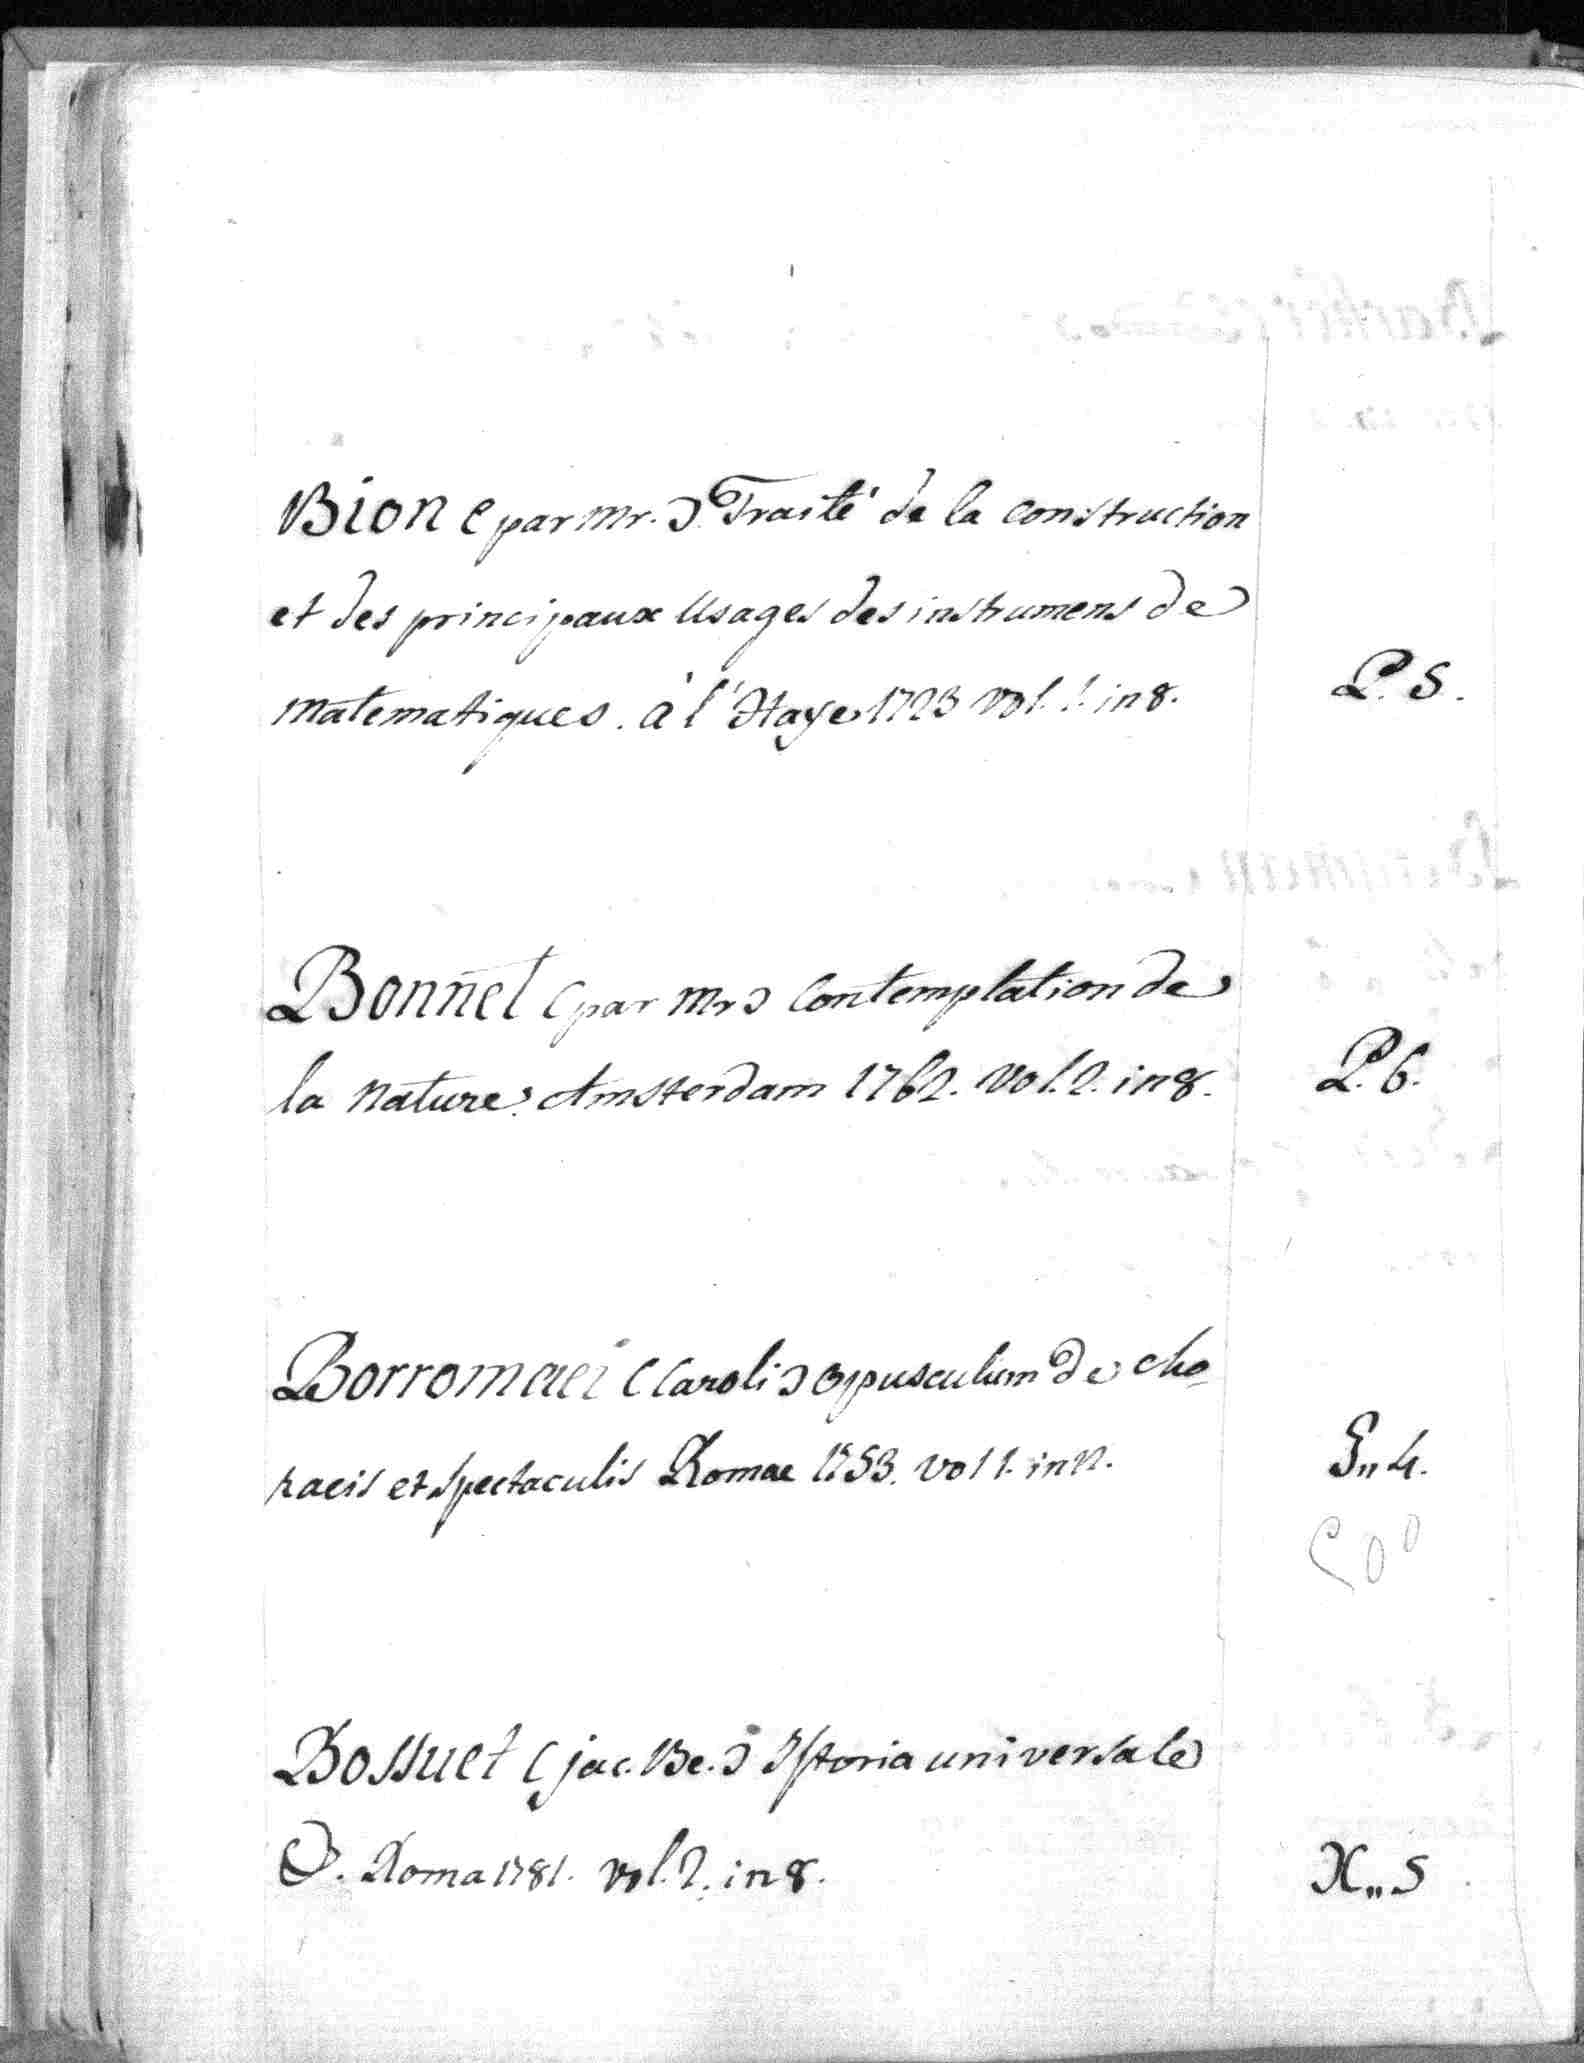 Bion (par Mr.) Traité de la construction
et des principaux Usages des instrumens de
matematiques. à l'Haye 1723 vol. 1. in 8. P. 5.
Bonnet (par Mr) Contemplation de
la Nature. Amsterdam 1762. Vol. 2. in 8. P. 6.
Borromaei (Caroli) opusculum de cho
raeis et spectaculis Romae 1753. vol 1. in 12. G,, 4.
Bossuet (jac. Be.) Istoria universale
Roma 1781. vol. 2. in 8. X,, 5